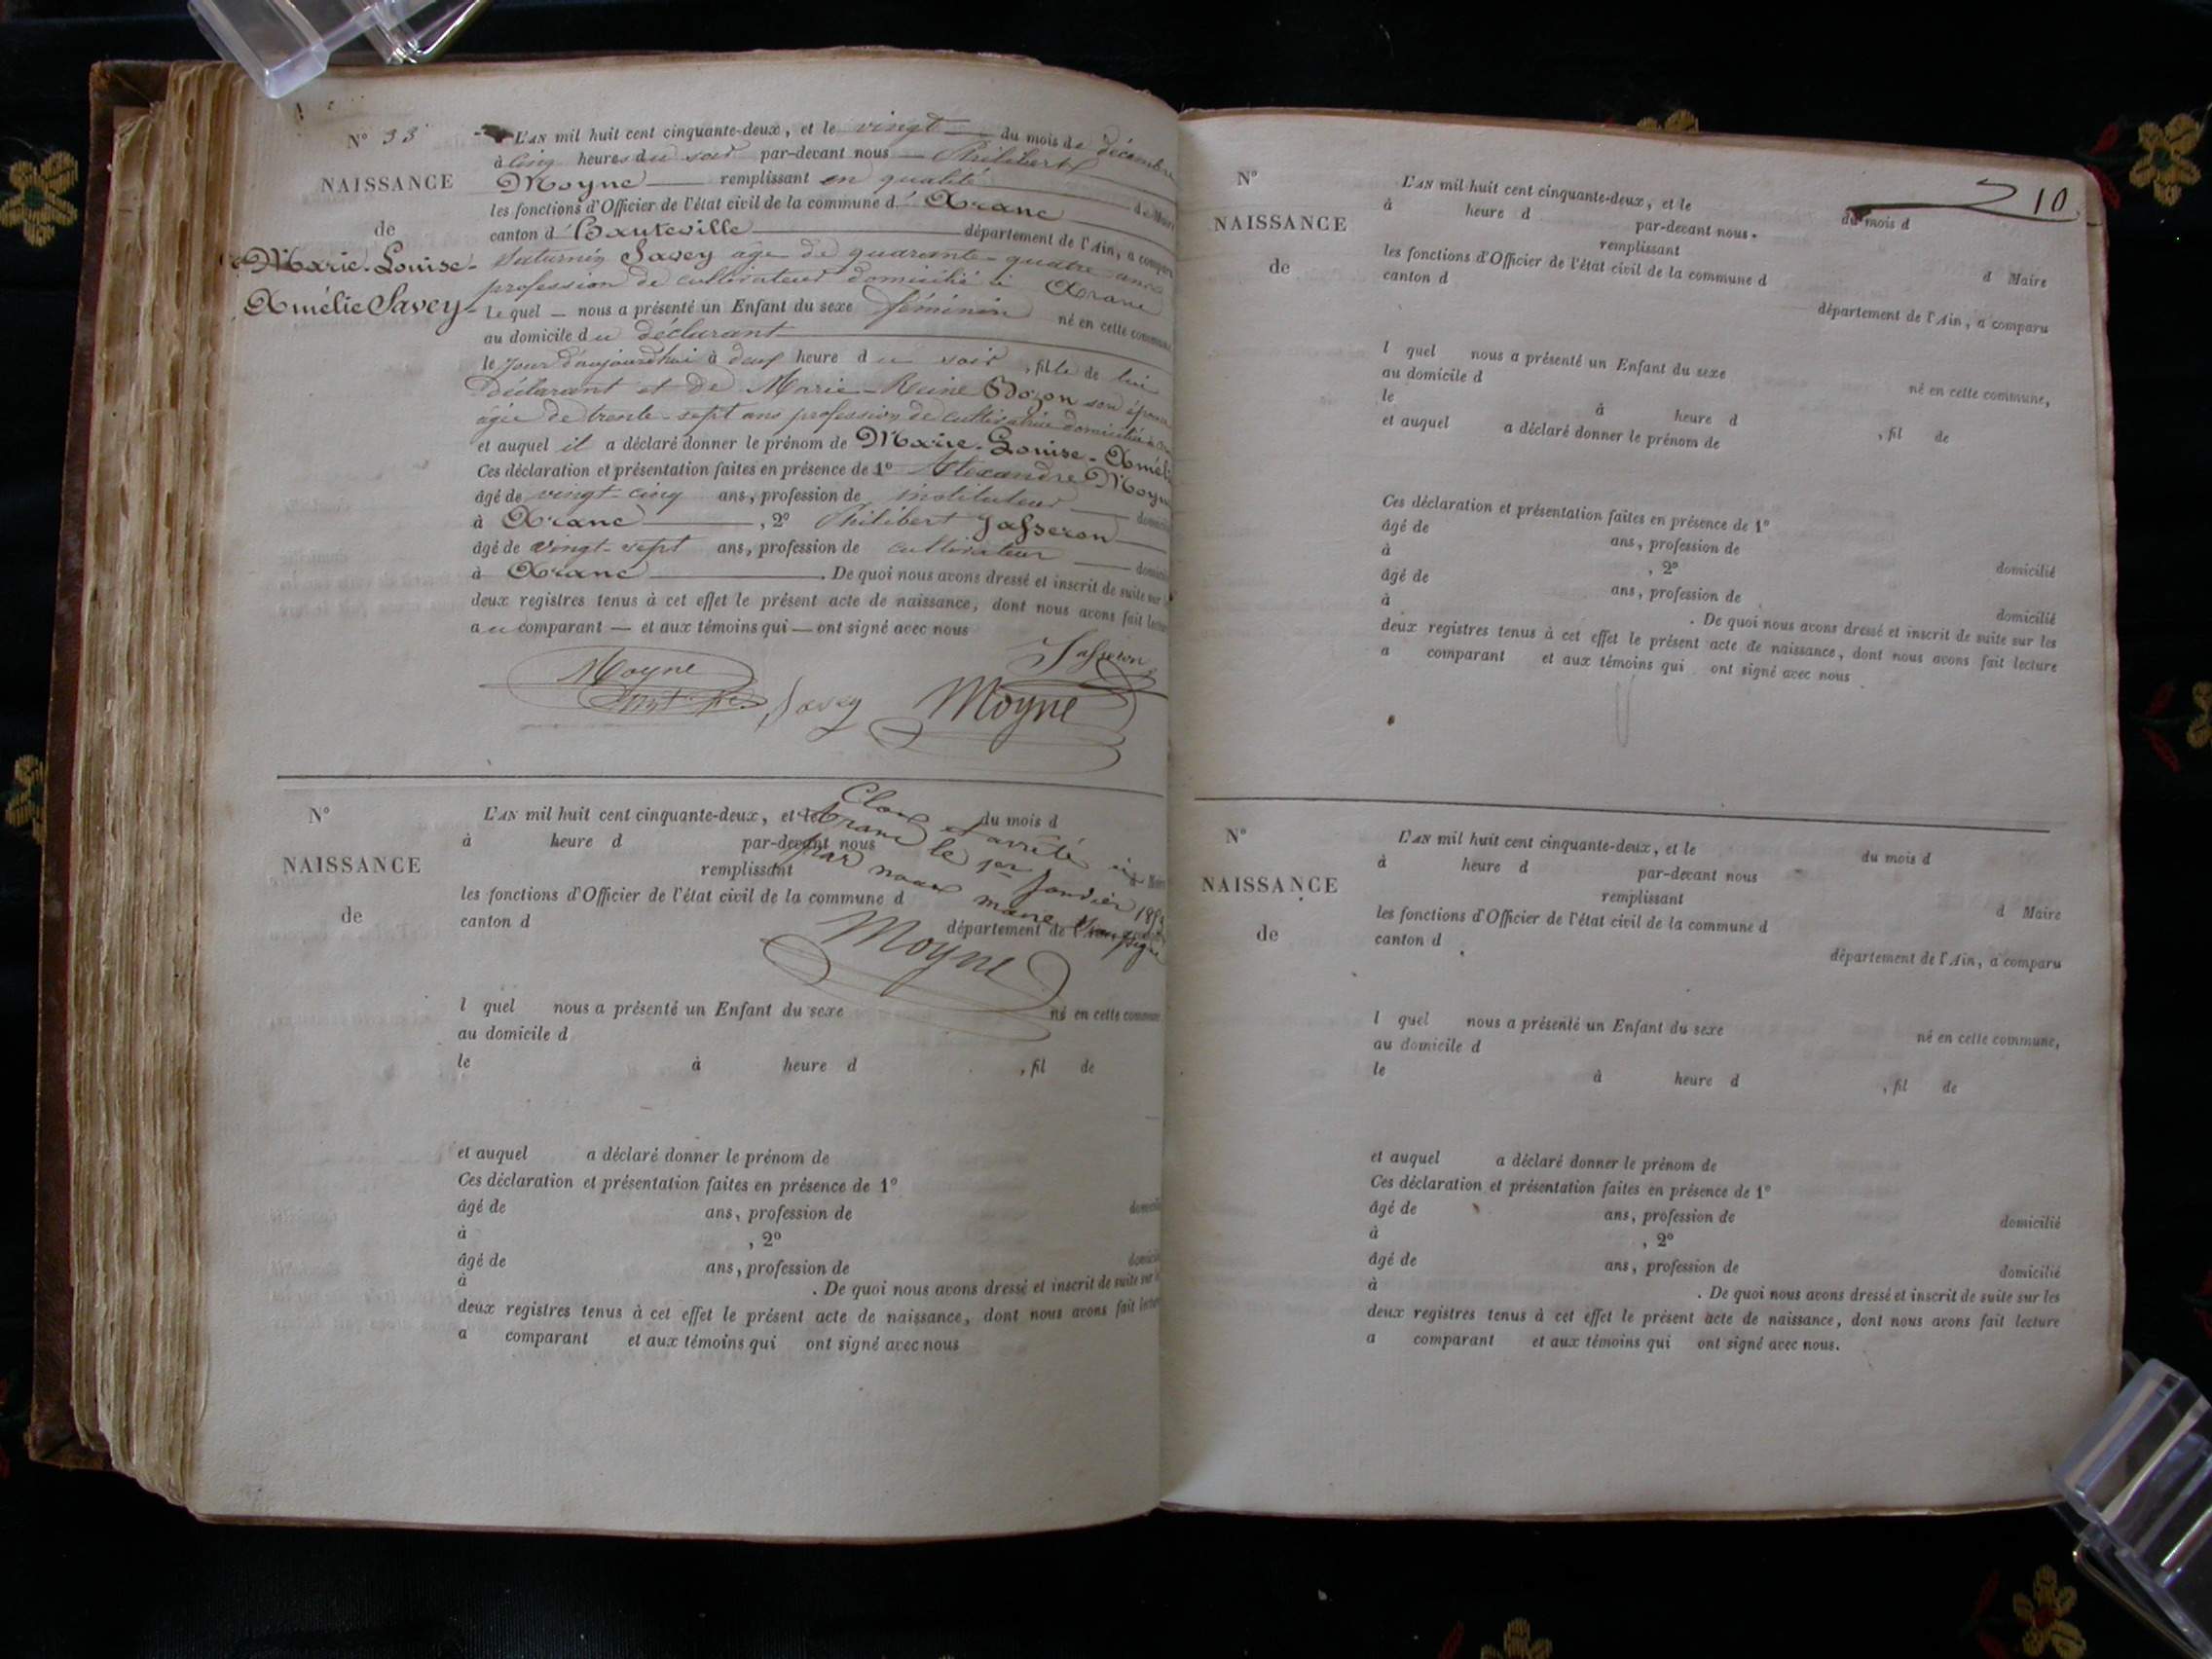 N° 33
NAISSANCE
de
Marie-Louise-
Amélie Savey
L'AN mil huit cent cinquante-deux, et le vingt du mois de décembre
à cinq heures du soir par-devant nous Philibert
Moyne remplissant en qualité de Maire
les fonctions d'Officier de l'état civil de la commune d' Aranc
canton d' Hauteville département de l'Ain, a comparu
Saturnin Savey âgé de quarante-quatre ans
profession de cultivateur domicilié à Aranc
lequel nous a présenté un Enfant du sexe féminin né en cette commune
au domicile du déclarant
le jour d'aujourd'hui à deux heure du soir, fille de lui
déclarant et de Marie-Reine Bozon son épouse
âgée de trente-sept ans profession de cultivatrice domiciliée à
et auquel il a déclaré donner le prénom de Marie-Louise-Amélie
Ces déclaration et présentation faites en présence de 1° Alexandre Moyne
âgé de vingt-cinq ans, profession de instituteur domicilié
à Aranc, 2° Philibert Jasseron
âgé de vingt-sept ans, profession de cultivateur domicilié
à Aranc. De quoi nous avons dressé et inscrit de suite sur
deux registres tenus à cet effet le présent acte de naissance, dont nous avons fait lecture
au comparant — et aux témoins qui — ont signé avec nous
Jasseron
Moyne
Savey Moyne
N°
NAISSANCE
de
L'AN mil huit cent cinquante-deux, et le du mois d
à heure d par-devant nous
remplissant d Maire
les fonctions d'Officier de l'état civil de la commune d
canton d département de l'
Clos et arrêté à
Aranc le 1er Janvier
par nous maire
Moyne
l quel nous a présenté un Enfant du sexe né en cette commune
au domicile d
le à heure d , fil de
et auquel a déclaré donner le prénom de
Ces déclaration et présentation faites en présence de 1°
âgé de ans, profession de domicilié
à , 2°
âgé de ans, profession de domicilié
à . De quoi nous avons dressé et inscrit de suite sur
deux registres tenus à cet effet le présent acte de naissance, dont nous avons fait lecture
a comparant et aux témoins qui ont signé avec nous
10
N°
NAISSANCE
de
L'AN mil huit cent cinquante-deux, et le du mois d
à heure d par-devant nous
remplissant d Maire
les fonctions d'Officier de l'état civil de la commune d
canton d département de l'Ain, a comparu
l quel nous a présenté un Enfant du sexe né en cette commune,
au domicile d
le à heure d , fil de
et auquel a déclaré donner le prénom de
Ces déclaration et présentation faites en présence de 1°
âgé de ans, profession de domicilié
à , 2°
âgé de ans, profession de domicilié
à . De quoi nous avons dressé et inscrit de suite sur les
deux registres tenus à cet effet le présent acte de naissance, dont nous avons fait lecture
a comparant et aux témoins qui ont signé avec nous
N°
NAISSANCE
de
L'AN mil huit cent cinquante-deux, et le du mois d
à heure d par-devant nous
remplissant d Maire
les fonctions d'Officier de l'état civil de la commune d
canton d département de l'Ain, a comparu
l quel nous a présenté un Enfant du sexe né en cette commune,
au domicile d
le à heure d , fil de
et auquel a déclaré donner le prénom de
Ces déclaration et présentation faites en présence de 1°
âgé de ans, profession de domicilié
à , 2°
âgé de ans, profession de domicilié
à . De quoi nous avons dressé et inscrit de suite sur les
deux registres tenus à cet effet le présent acte de naissance, dont nous avons fait lecture
a comparant et aux témoins qui ont signé avec nous.